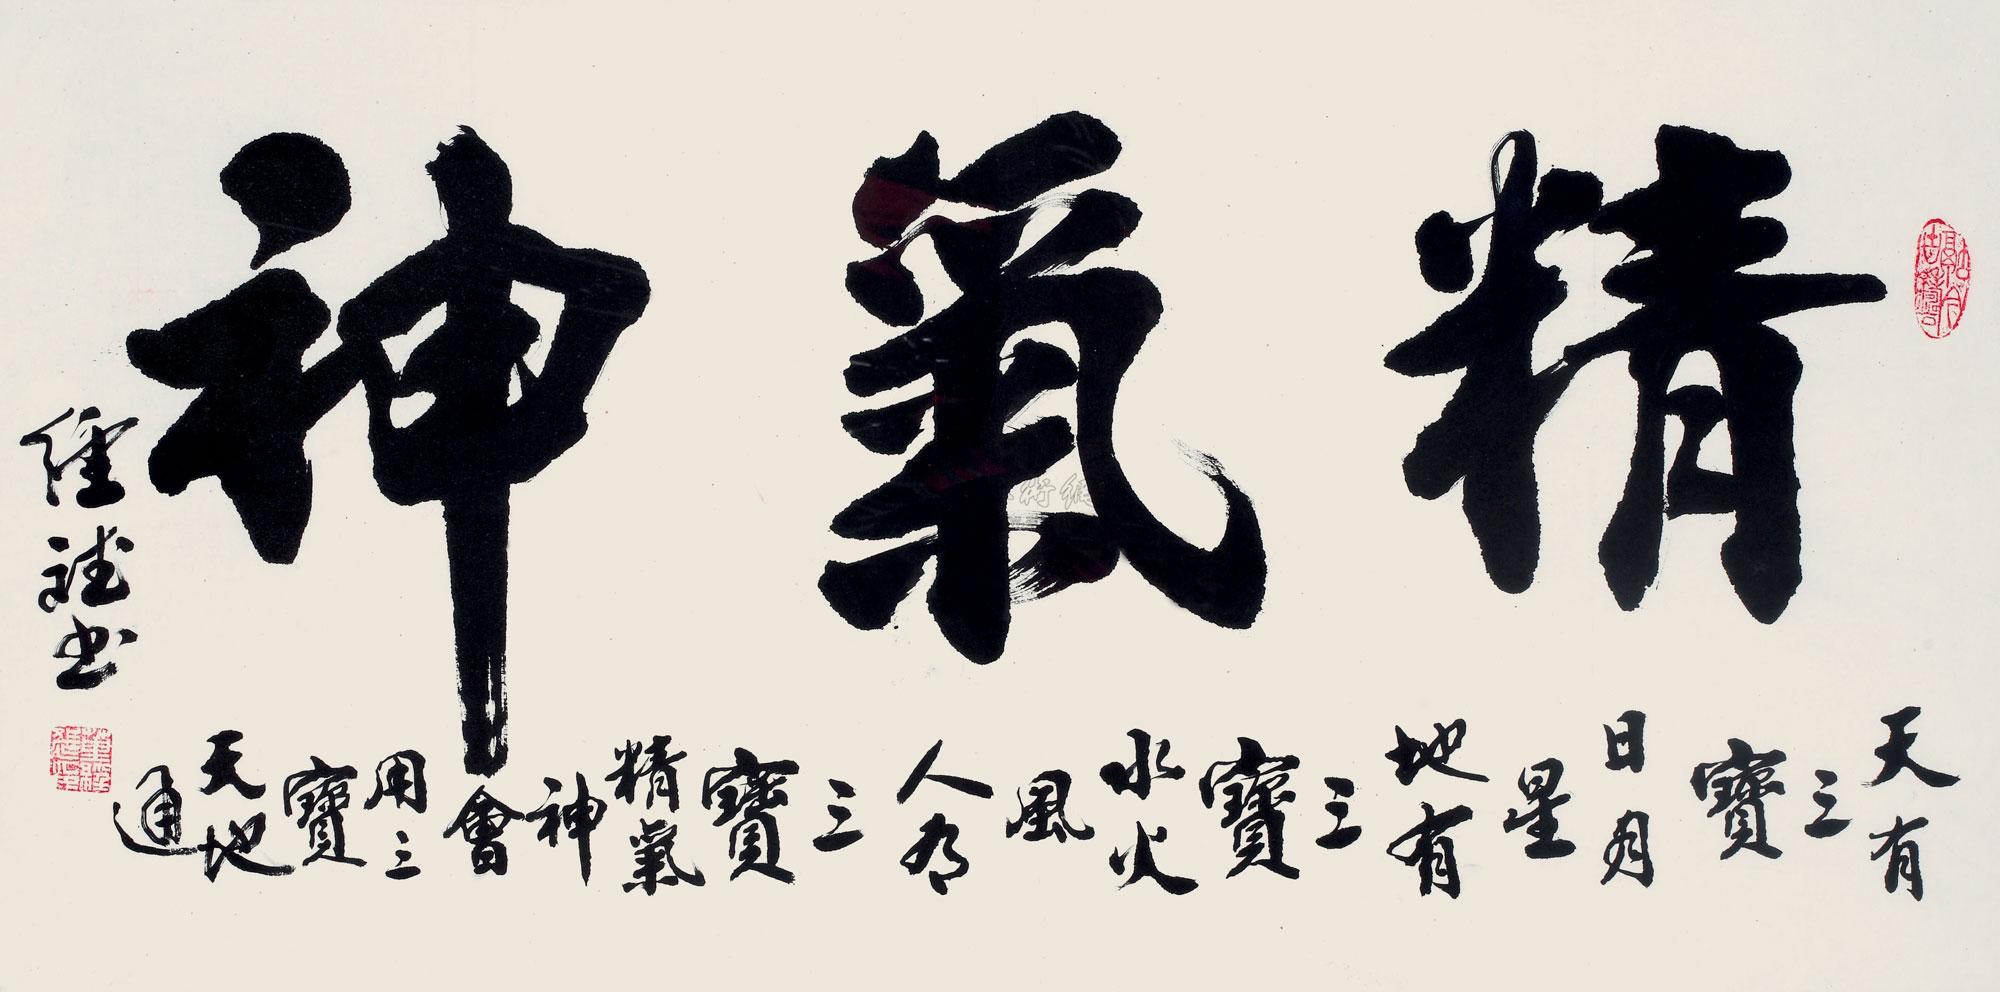 精氣神
天有三寶日月星地有三寶水火風人有三寶精氣神會用三寶天地通
書